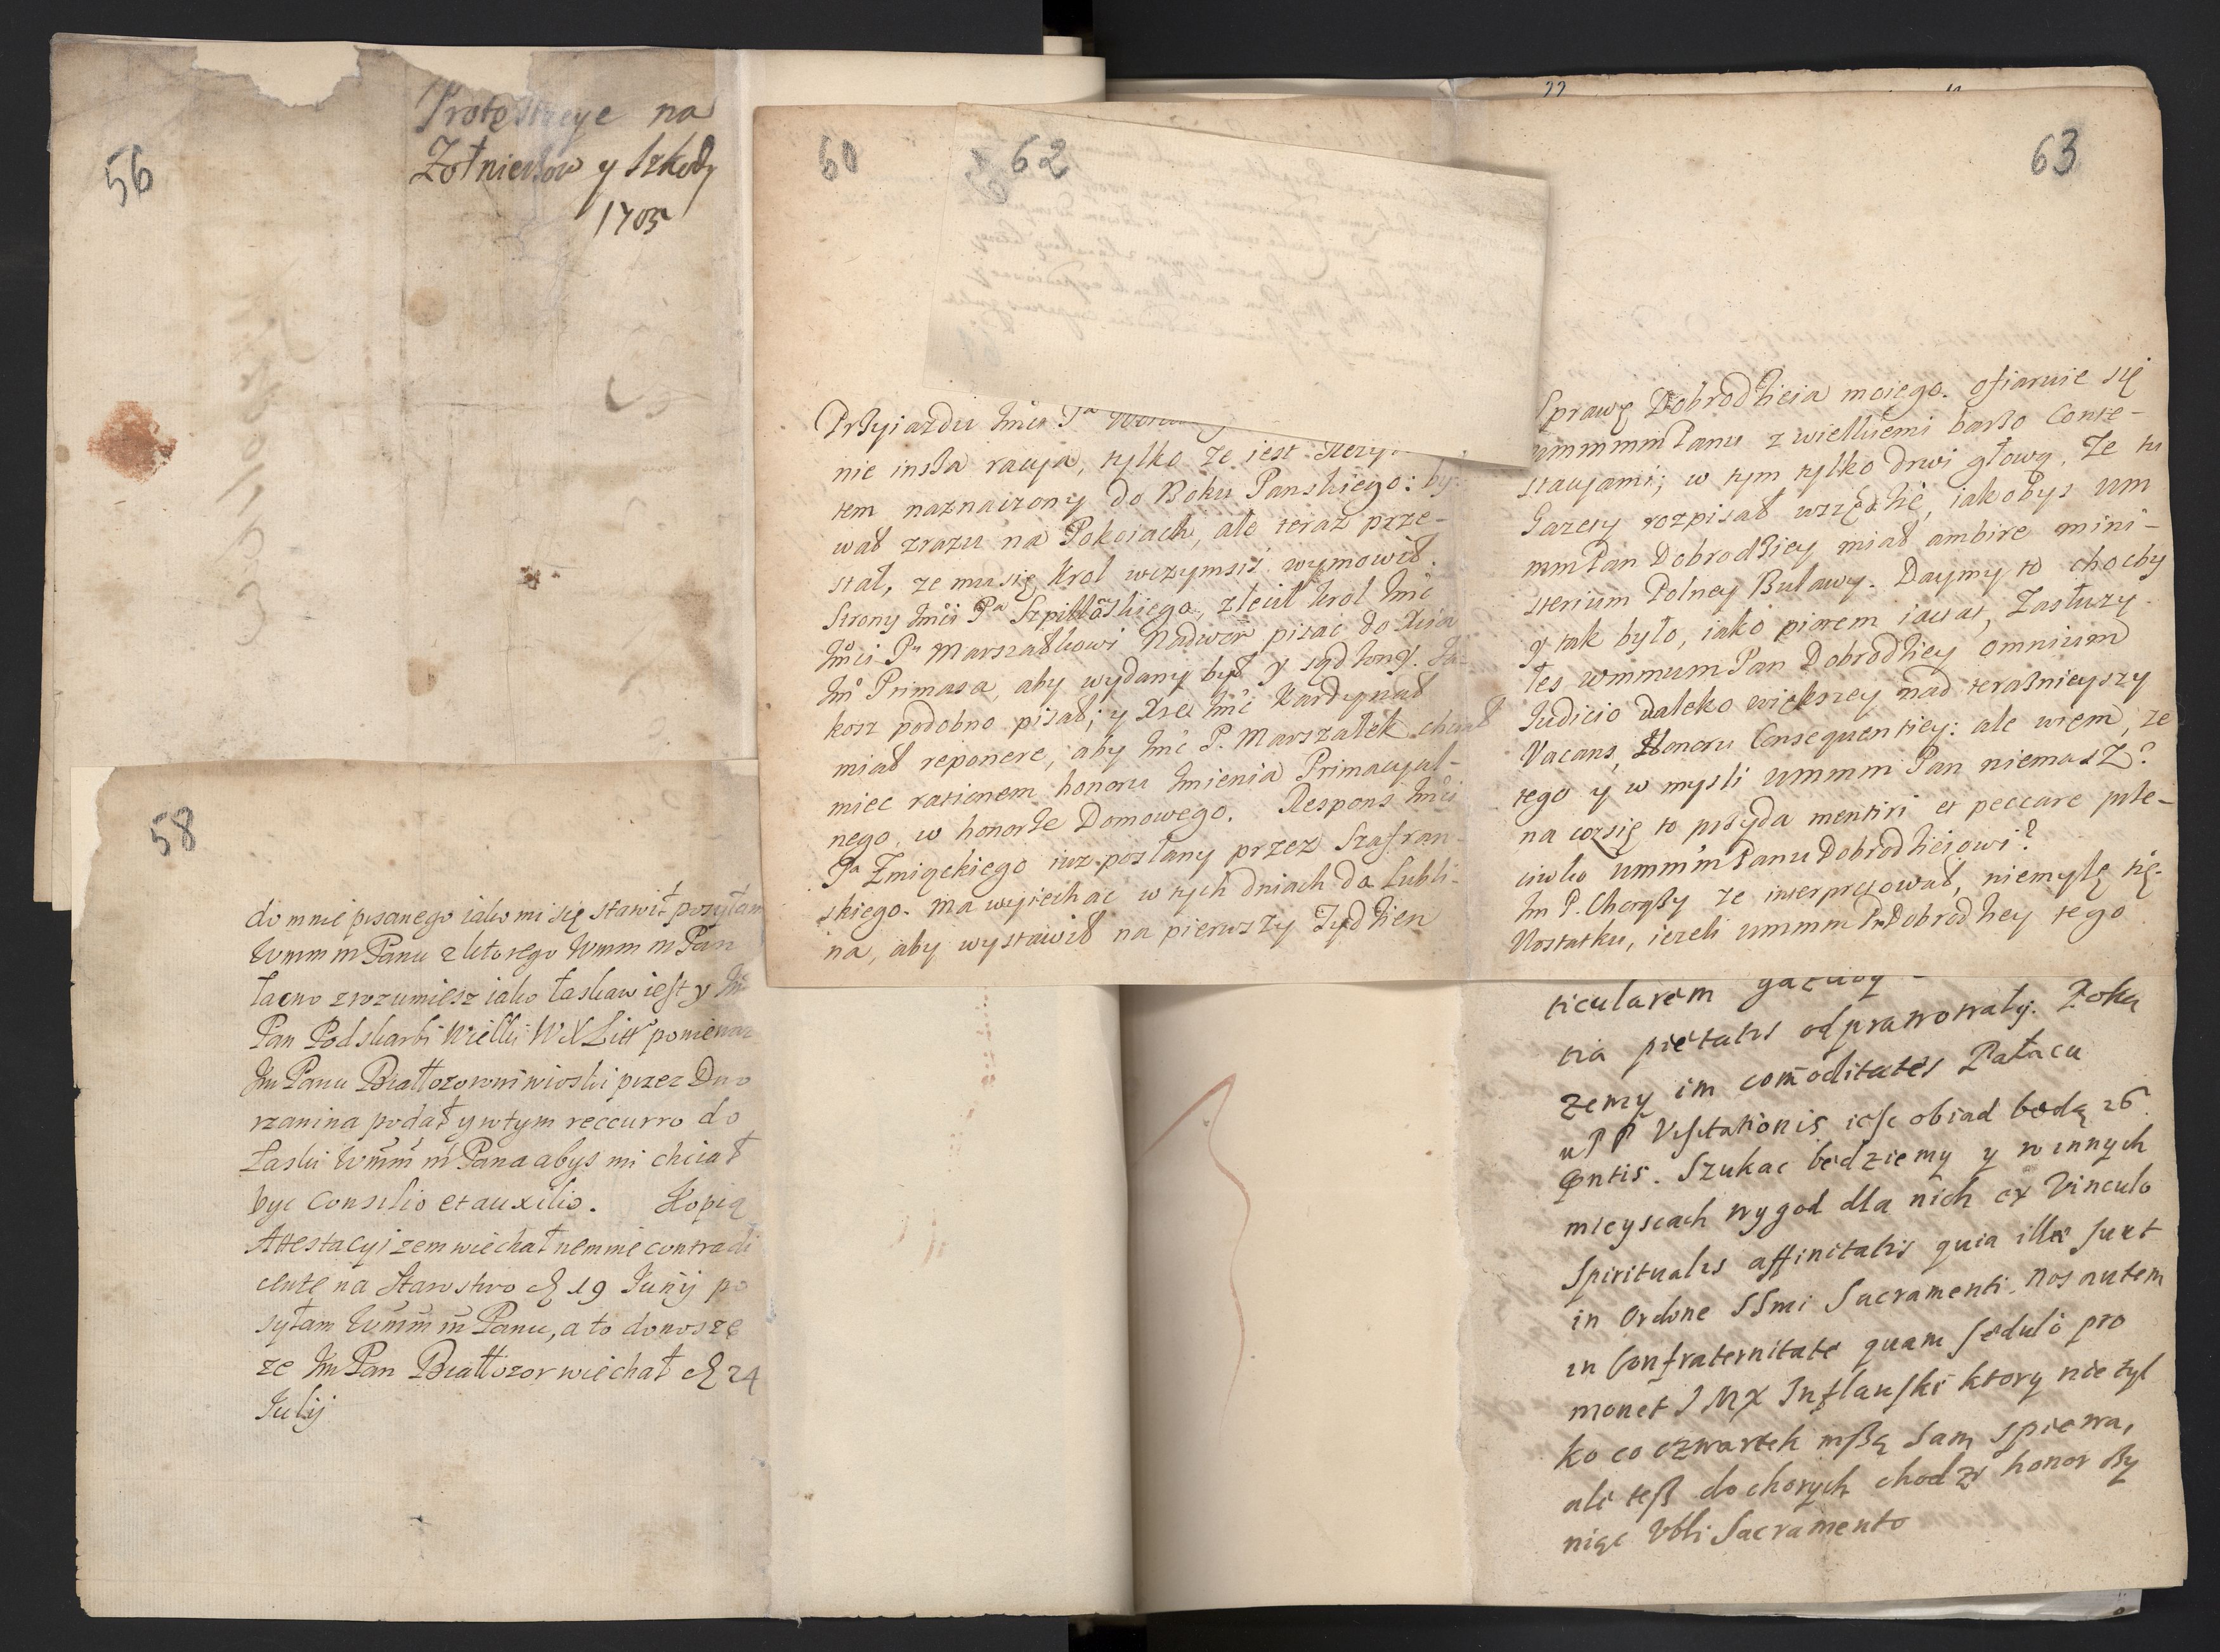 56
Protestacye na
Żołnierzow y szkody
1705
58
do mnie pisanego iako mi się stawił posyłam
Wmm m Panu z ktorego Wmm m Pan
łacno zrozumiesz iako łaskaw iest y Im
Pan Podskarbi Wielki W X Litt poniewaz
Im Panu Białłozorowi wioski przez Dwo
rzanina podał y w tym reccurro do
Łaski Wmm m Pana abys mi chciał
byc Consilio et auxilio. Kopią
Attestacyi zem wiechał nemine contradi
cente na Starostwo d 19 Junij po
syłam Wmm m Panu, a to donoszę
ze Im Pan Białłozor wiechał d 24
Julij
60
62
Przyiazdu Imci Pa
nie insza racya, tylko ze iest
tem naznaczony do Boku Panskiego: by-
wał zrazu na Pokoiach, ale teraz prze-
stał, ze mu się Krol wczymsis wymowił.
Strony Imci Pa Szpilkoskiego, zlecił Krol Imc
Imci Pu Marszałkowi Nadwor pisac do Xcia
Im Primasa, aby wydany był y sądzony. Ja-
kosz podobno pisał; y Xże Imc Kardynał
miał reponere, aby Imc P. Marszałek chciał
miec rationem honoru Imienia Primacyal-
nego, w honorze Domowego. Respons Imci
Pa Zmiąckiego iuz posłany przez Szafran-
skiego. Ma wyiechac w tych dniach do Lubli-
na, aby wystawił na pierwszy Tydzien
63
Sprawę Dobrodzieia moiego. Ofiaruie się
ummmm Panu z wielkiemi barzo Conte-
stacyami; w tym tylko drwi głową, Ze tu
Gazety rozpisał wszędzie, iakobys um
mm Pan Dobrodziey miał ambire mini-
sterium Polney Buławy. Daymy to chocby
y tak było, iako piorem iawas, Zasłuzy
łes wmmum Pan Dobrodziey omnium
Judicio daleko większey nad teraznieyszy
Vacans, Honoru Consequentiey: ale wiem, ze
tego y w mysli ummm Pan niemasz?
na coz się to przyda mentiri et peccare prze-
ciwko ummm Panu Dobrodzieiowi?
Im P. Chorąży ze interpretował, niemylę się.
Nostatku, iezeli ummm Pn Dobrodziey tego
ticularem
tia pietatis odprawowały. Zoką
zemy im comoditates Pałacu
u P P Visitationis iesc obiad bedą 26
entis. Szukac bedziemy y w innych
mieyscach wygod dla nich ex Vinculo
Spiritualis affinitatis quia illæ sunt
in Ordine SSmi Sacramenti. Nos autem
in Confraternitate quam sedulo pro
monet J M X Inflanski ktory nie tyl
ko co czwartek mszą sam spiewa,
ale tesz do chorych chodzi honor czy
niąc Vbli Sacramento